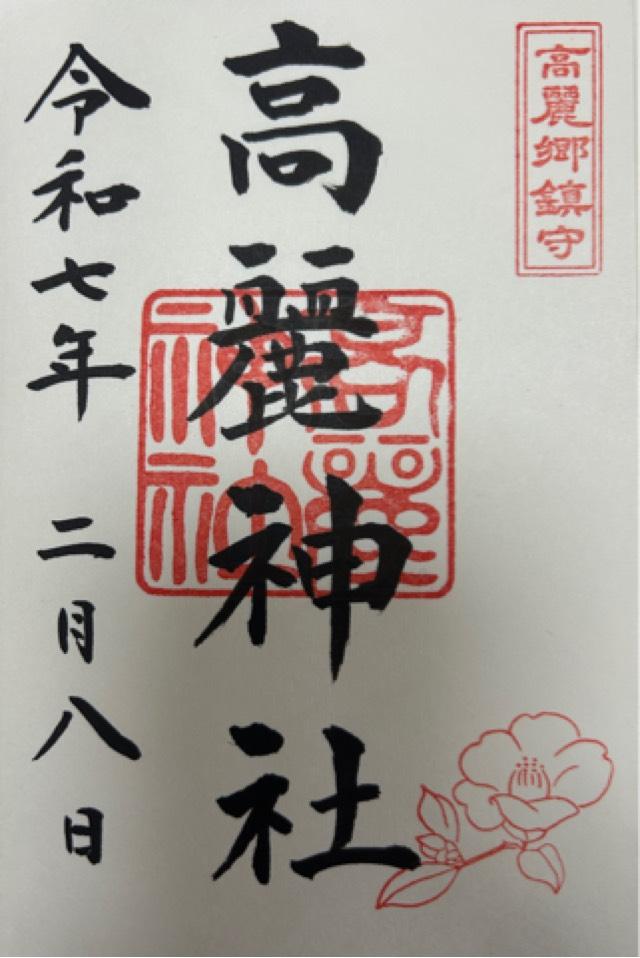 高麗郷鎮守
高麗神社
令和七年 二月八日